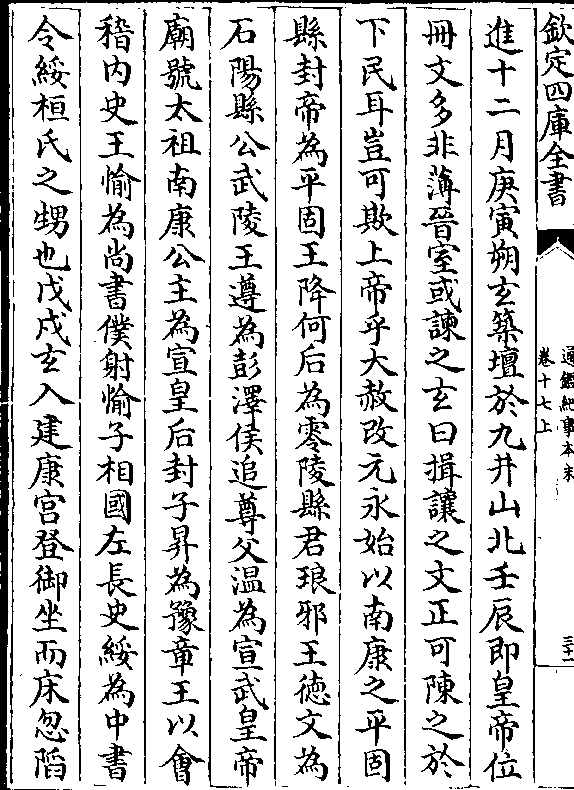 欽定四庫全書
通鑑紀事本末
卷十七上
三十一
進十二月庚寅朔玄築壇於九井山北壬辰即皇帝位
冊文多非薄晉室或諫之玄曰揖讓之文正可陳之於
下民耳豈可欺上帝乎大赦改元永始以南康之平固
縣封帝為平固王降何后為零陵縣君琅邪王德文為
石陽縣公武陵王遵為彭澤侯追尊父温為宣武皇帝
廟號太祖南康公主為宣皇后封子昇為豫章王以會
稽内史王愉為尚書僕射愉子相國左長史綏為中書
令綏桓氏之甥也戊戌玄入建康宫登御坐而床忽陷